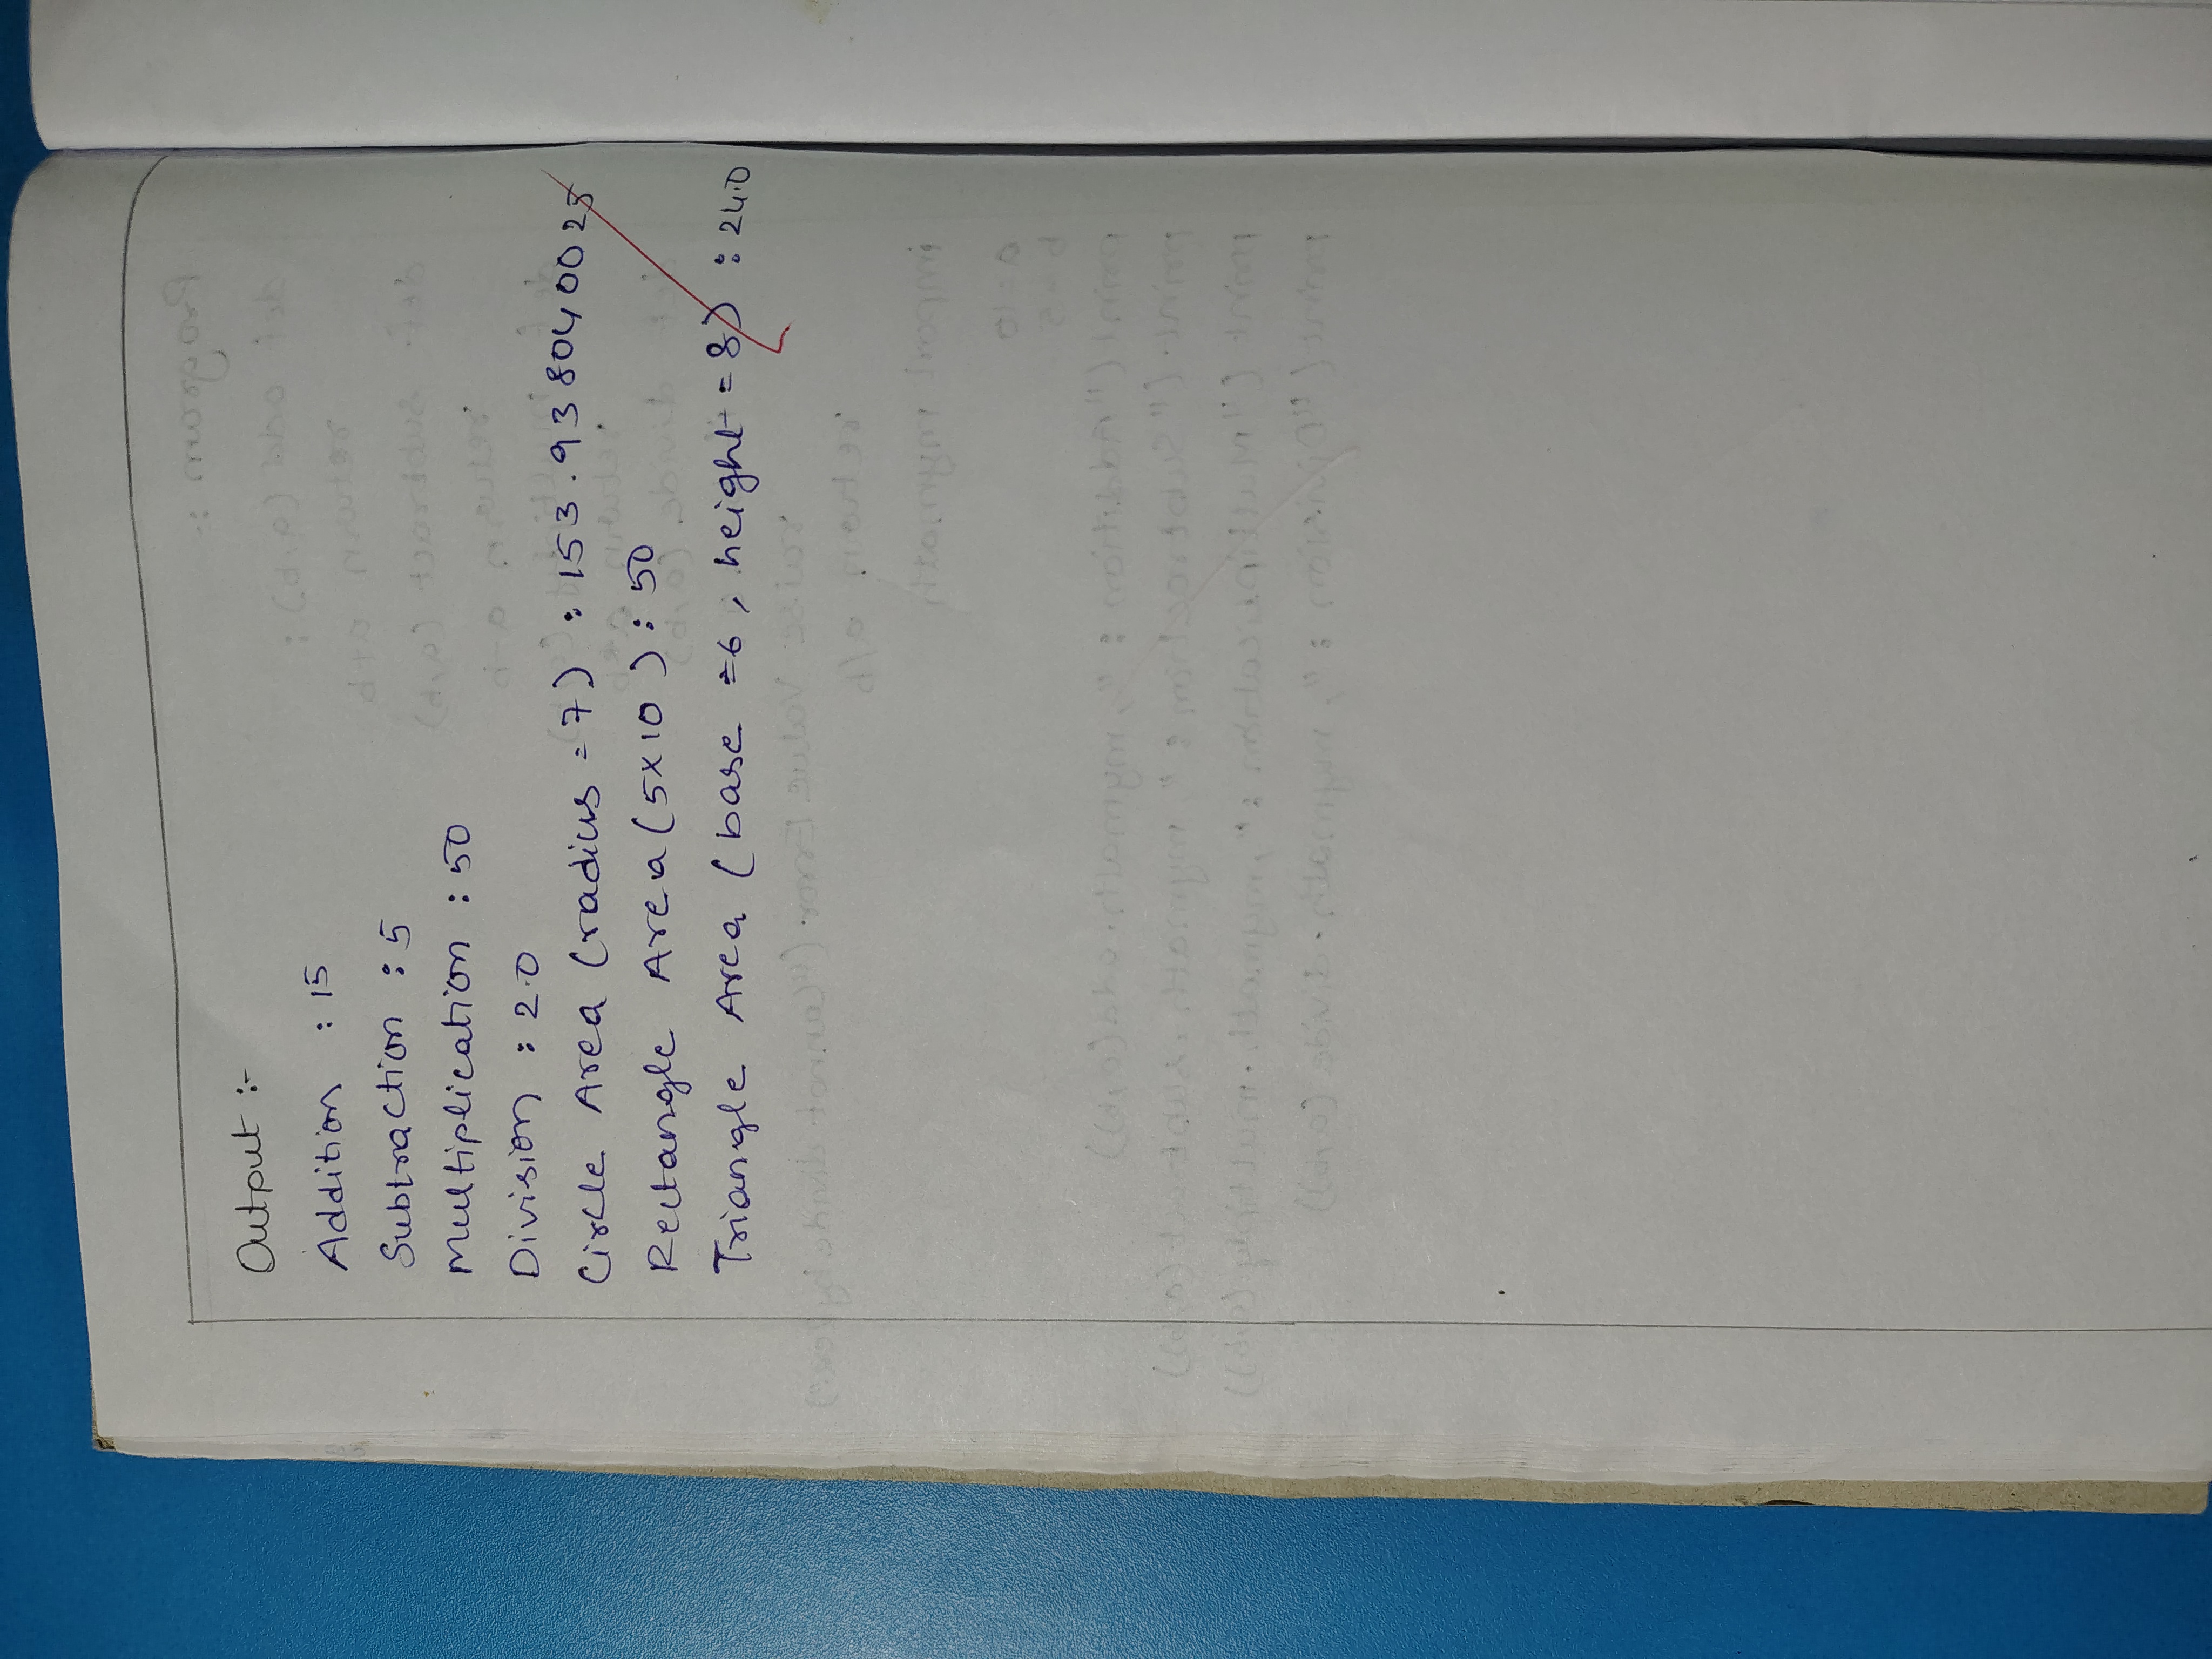 Output :-
Addition : 15
Subtraction : 5
Multiplication : 50
Division : 2.0
Circle Area (radius = 7) : 153.938040025
Rectangle Area (5x10) : 50
Triangle Area (base =6, height = 8) : 24.0